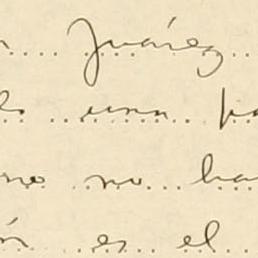 n Juárez
lo una pa
no no ha
ón es el